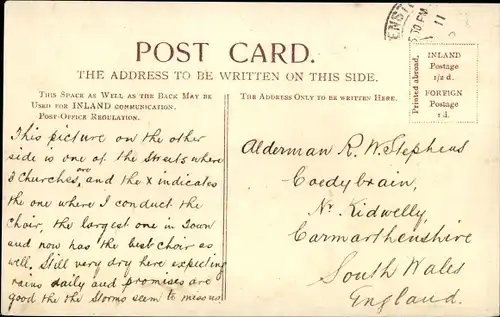 POST CARD.
THE ADDRESS TO BE WRITTEN ON THIS SIDE.
This Space as Well as the Back May be
Used for INLAND communication.
Post-Office Regulation.
The Address Only to be written Here.
Printed abroad.
INLAND
Postage
1/2 d.
FOREIGN
Postage
1 d.
30 PM
11
This picture on the other
side is one of the Streets where
3 Churches are, and the x indicates
the one where I conduct the
Choir, the largest one in Town
and now has the best choir as
well. Still very dry here expecting
rains daily and promises are
good the the Storms seem to miss us
Alderman R. W. Stephens
Coedybrain,
Nr. Kidwelly,
Carmarthenshire
South Wales
England.